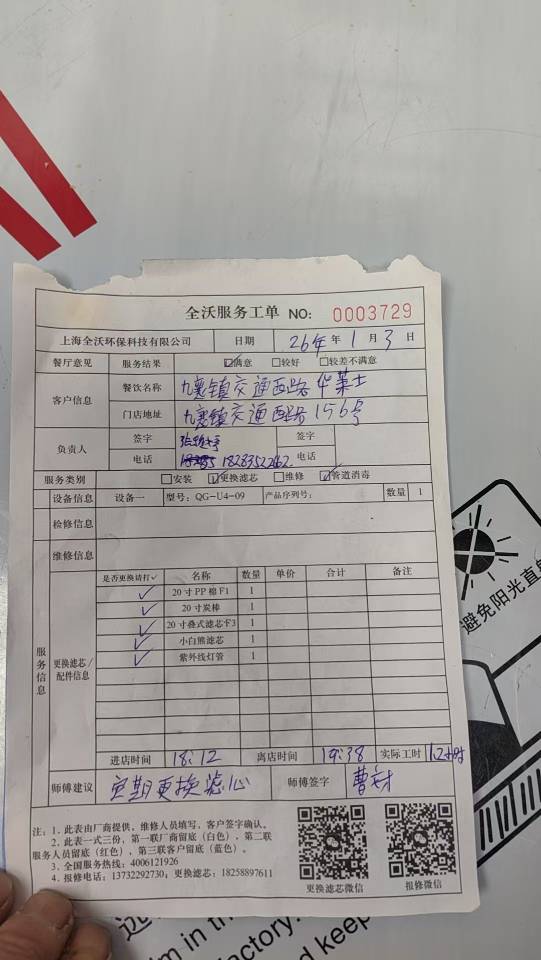 全沃服务工单 NO: 0003729
上海全沃环保科技有限公司 日期 26年 1月 3日
餐厅意见 服务结果 ☑满意 □较好 □较差不满意
客户信息 餐饮名称 九襄镇交通西路华莱士
门店地址 九襄镇交通西路156号
负责人 签字 签字
电话 18283522162 电话
服务类别 □安装 ☑更换滤芯 □维修 ☑管道消毒
设备信息 设备一 型号: QG-U4-09 产品序列号: 数量 1
检修信息
维修信息
服务信息
更换滤芯/配件信息
是否更换请打✓ 名称 数量 单价 合计 备注
✓ 20寸PP棉F1 1
✓ 20寸炭棒 1
✓ 20寸叠式滤芯卡3 1
✓ 小白熊滤芯 1
✓ 紫外线灯管 1
进店时间 18:12 离店时间 19:38 实际工时 1.2小时
师傅建议 定期更换滤心 师傅签字
注: 1. 此表由厂商提供, 维修人员填写, 客户签字确认。
2. 此表一式三份, 第一联厂商留底(白色), 第二联
服务人员留底(红色), 第三联客户留底(蓝色)。
3. 全国服务热线: 4006121926
4. 报修电话: 13732292730; 更换滤芯: 18258897611
更换滤芯微信 报修微信
避免阳光直
m in th
actory.
d keep